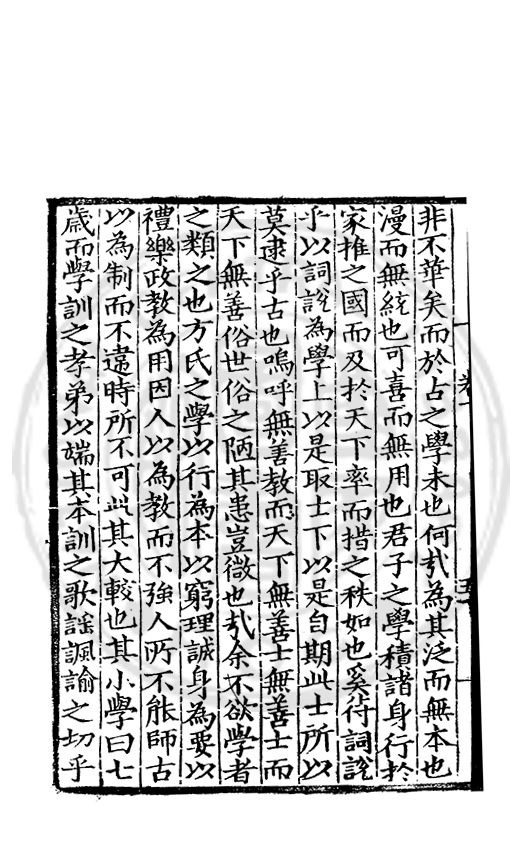 非不華矣而於古之學未也何㢤為其泛而無本也
漫而無統也可喜而無用也君子之學積諸身行於
家推之國而及扵天下率而措之秩如也奚待詞說
乎以詞說為學上以是取士下以是自期此士所以
莫逮乎古也嗚呼無善教而天下無善士無善士而
天下無善俗世俗之陋其患豈微也㢤余不欲學者
之類之也方氏之學以行為本以窮理誠身為要以
禮樂政教為用因人以為教而不強人所不能師古
以為制而不違時所不可此其大較也其小學曰七
歲而學訓之孝弟以端其本訓之歌謡諷諭之切乎